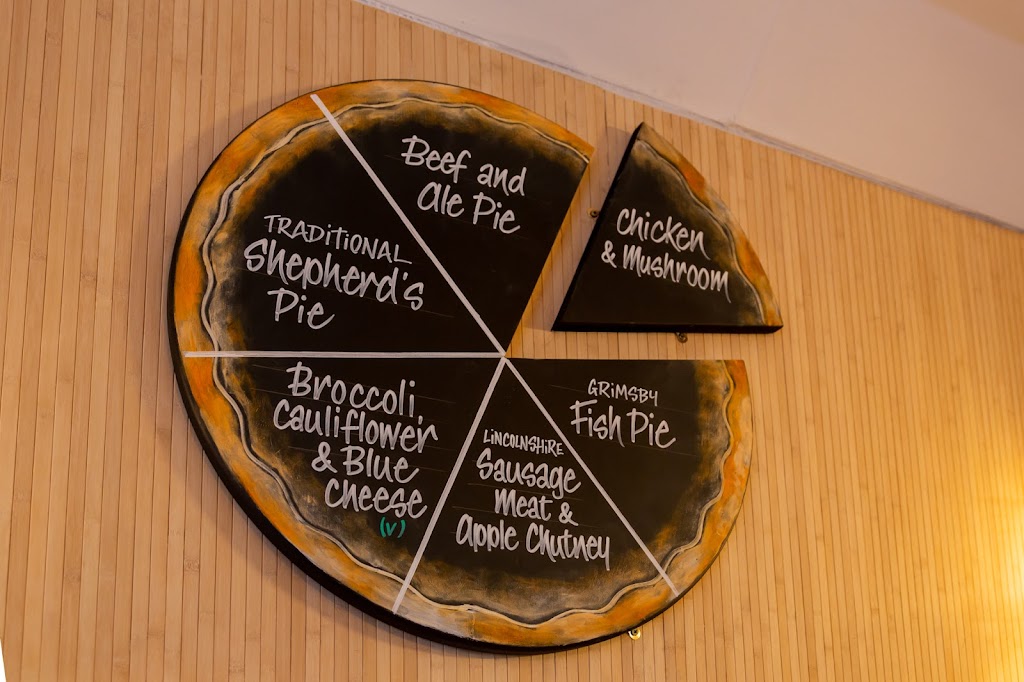 Beef and
Ale Pie
Chicken
& Mushroom
TRADITIONAL
Shepherd's
Pie
Broccoli,
Cauliflower
& Blue
Cheese
(V)
LINCOLNSHIRE
Sausage
Meat &
Apple Chutney
GRIMSBY
Fish Pie